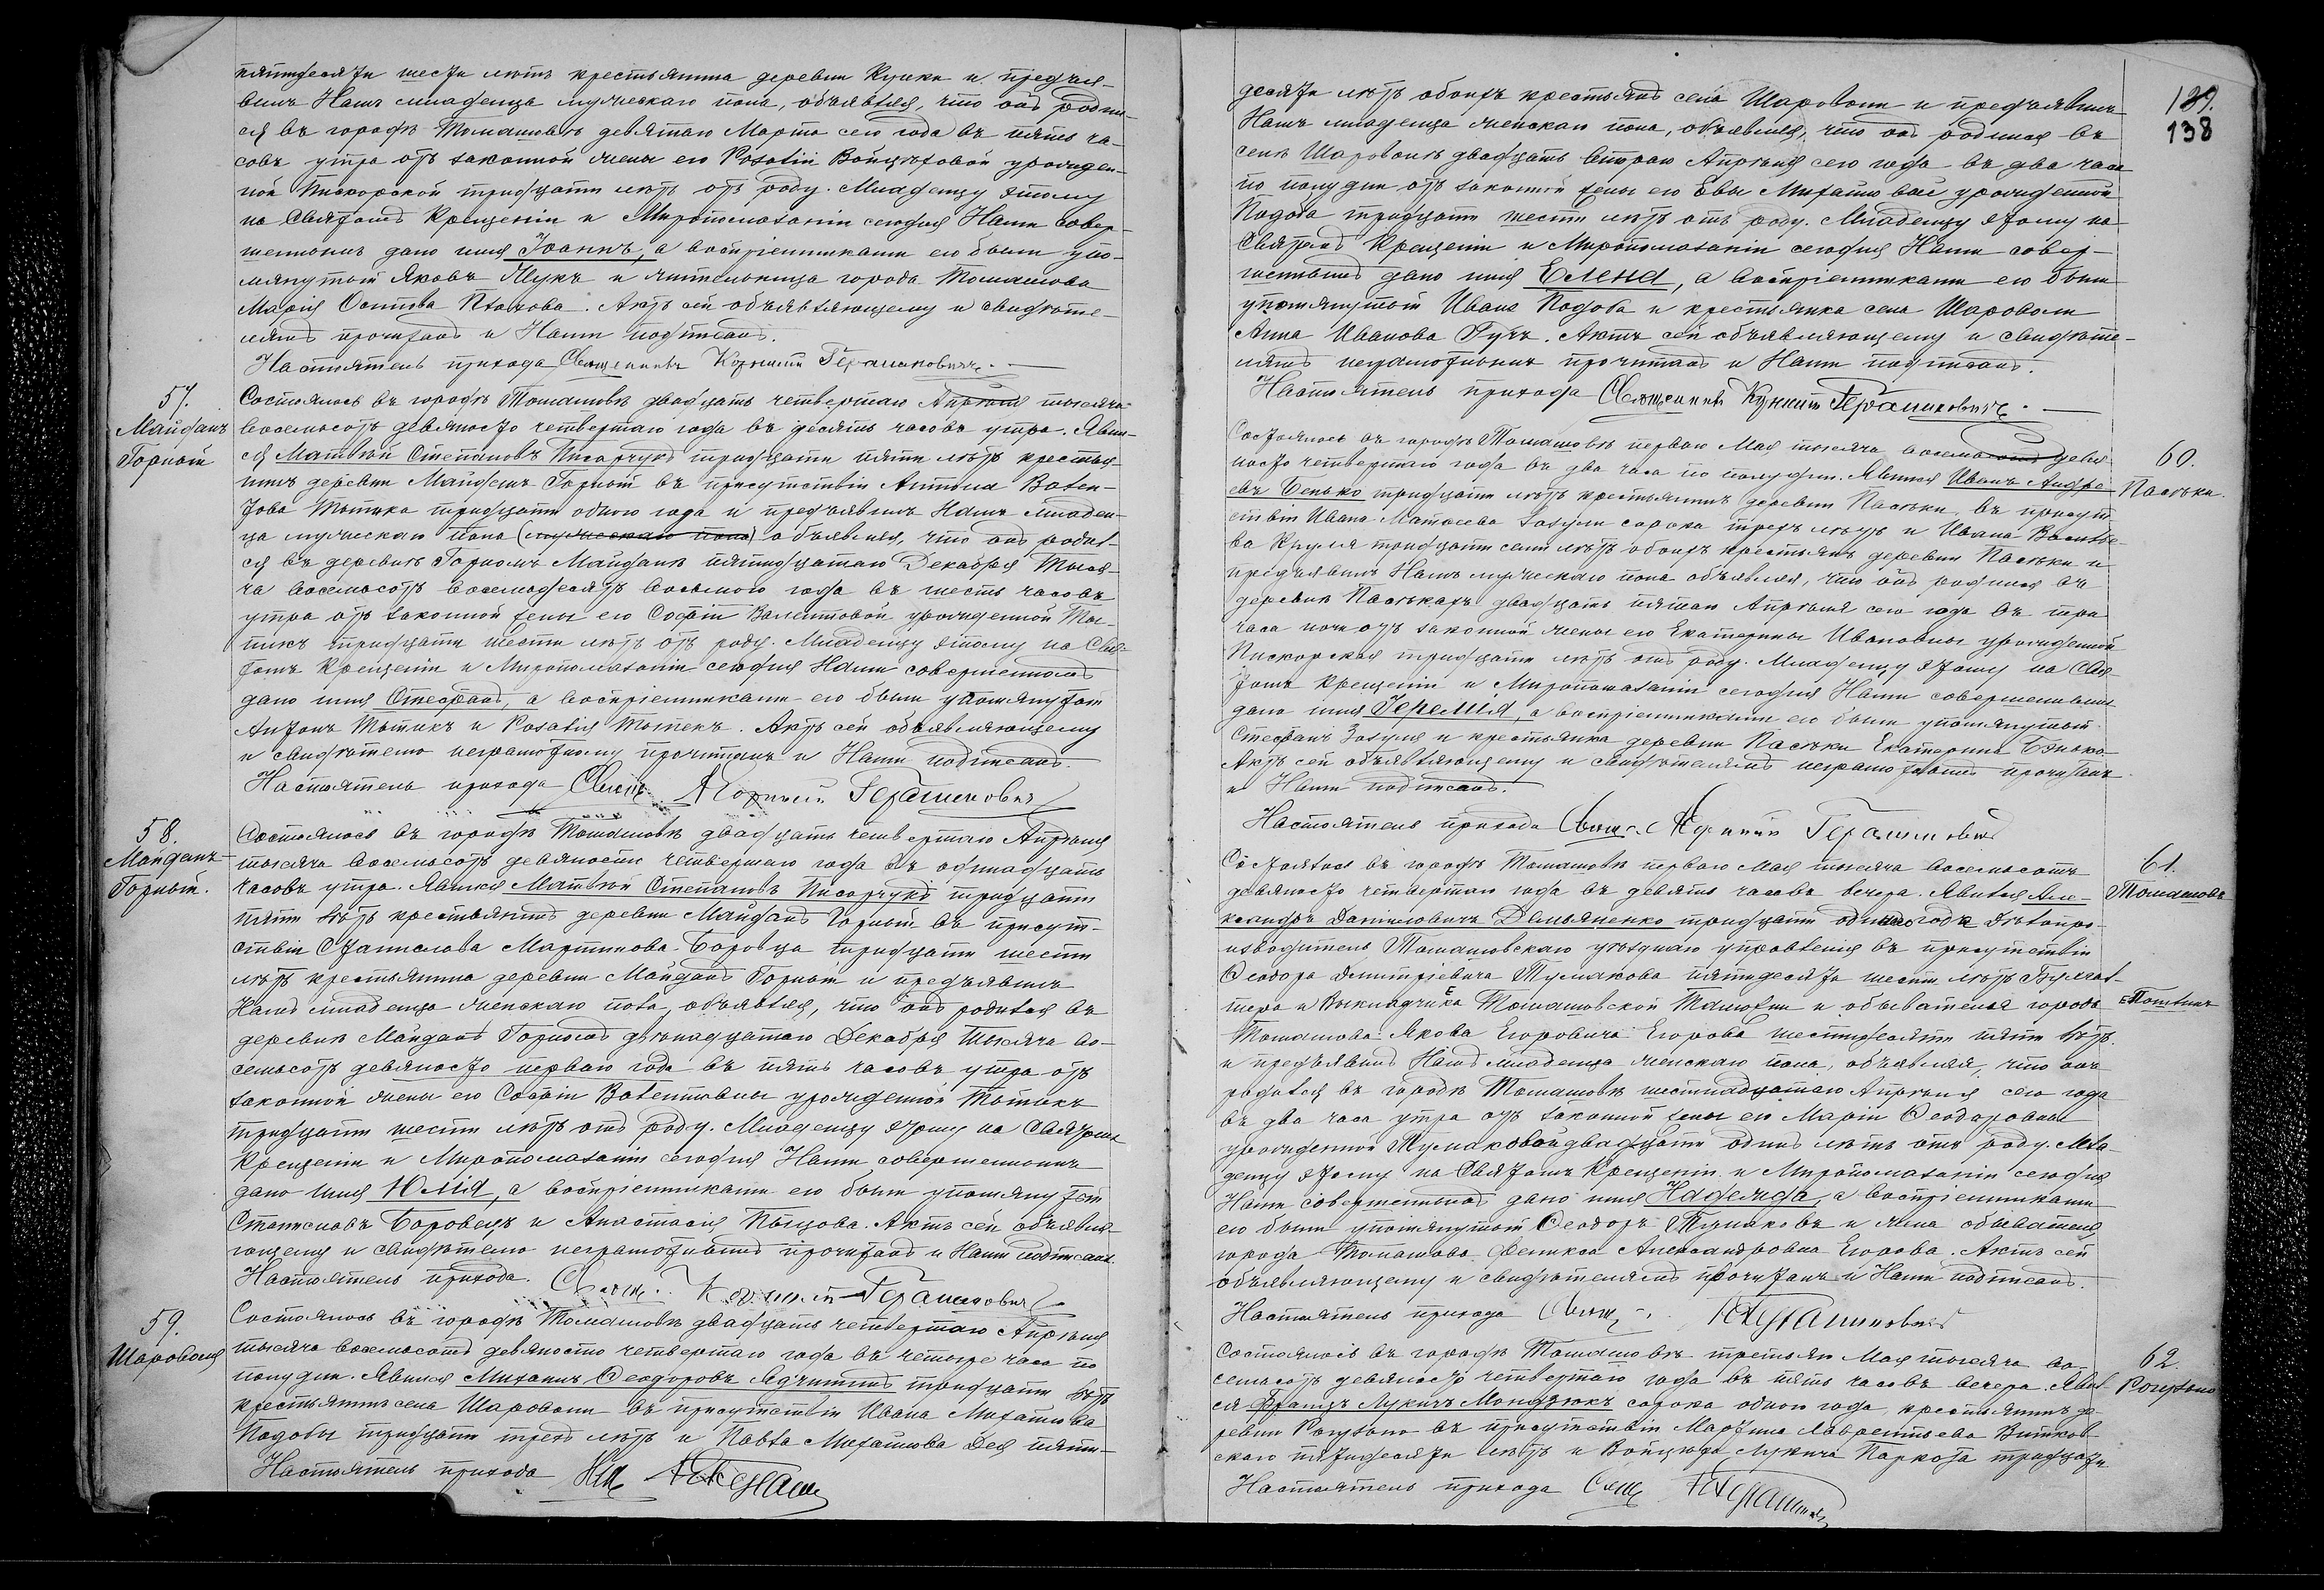 пятидесяти шести лѣтъ крестьянина деревни Кунки и предъя-
вилъ Намъ младенца мужескаго пола, объявляя, что онъ родил-
ся въ городѣ Томашовѣ девятаго Марта сего года въ пять ча-
совъ утра отъ законной жены его Розаліи Войцѣховой урожден-
ной Пискорской тридцати лѣтъ отъ роду. Младенцу этому
на Святомъ Крещеніи и Миропомазаніи сегодня Нами совер-
шенномъ дано имя Іоаннъ, а воспріемниками его были упо-
мянутый Яковъ Жукъ и жительница города Томашова
Марія Осипова Актъ сей объявляющему и свидѣте-
лямъ прочитанъ и Нами подписанъ.
Настоятель прихода Священникъ Корнилій Герашковичъ.
57.
Майданъ
Горный
Состоялось въ городѣ Томашовѣ двадцать четвертаго Апрѣля тысяча
восемьсотъ девяносто четвертаго года въ десять часовъ утра. Явил-
ся Матвѣй Степановъ Писарчукъ тридцати пяти лѣтъ крестья-
нинъ деревни Майданъ Горный въ присутствіи Антона Вален-
това Тытика тридцати одного года и предъявилъ Намъ младен-
ца мужескаго пола (мужескаго пола) объявляя, что онъ родил-
ся въ деревнѣ Горномъ Майданѣ пятнадцатаго Декабря Тыся-
ча восемьсотъ восемьдесятъ восьмого года въ шесть часовъ
утра отъ законной жены его Софіи Валентовой урожденной Ты-
тикъ тридцати шести лѣтъ отъ роду. Младенцу этому на Свя-
томъ Крещеніи и Миропомазаніи сегодня Нами совершенномъ
дано имя Стефанъ, а воспріемниками его были упомянутый
Антонъ Тытикъ и Розалія Тытекъ. Актъ сей объявляющему
и свидѣтелю неграмотному прочитанъ и Нами подписанъ.
Настоятель прихода Свящ. Корнилій Герашковичъ
58.
Майданъ
Горный.
Состоялось въ городѣ Томашовѣ двадцать четвертаго Апрѣля
тысяча восемьсотъ девяности четвертаго года въ одинадцать
часовъ утра. Явился Матвѣй Степановъ Писарчукъ тридцати
пяти лѣтъ крестьянинъ деревни Майданъ Горный въ присут-
ствіи Станислава Мартинова Боровца тридцати шести
лѣтъ крестьянина деревни Майданъ Горный и предъявилъ
Намъ младенца женскаго пола, объявляя, что онъ родился въ
деревнѣ Майданъ Горномъ двенадцатаго Декабря Тысяча во-
семьсотъ девяносто перваго года въ пять часовъ утра отъ
законной жены его Софіи Валентовны урожденной Тытикъ
тридцати шести лѣтъ отъ роду. Младенцу этому на Святомъ
Крещеніи и Миропомазаніи сегодня Нами совершенномъ
дано имя Юлія, а воспріемниками его были упомянутый
Станиславъ Боровецъ и Анастасія Актъ сей объявля-
ющему и свидѣтелю неграмотнымъ прочитанъ и Нами подписанъ.
Настоятель прихода. Свящ. Корнилій Герашковичъ
59.
Шаровола
Состоялось въ городѣ Томашовѣ двадцать четвертаго Апрѣля
тысяча восемьсотъ девяносто четвертаго года въ четыре часа по
полудни. Явился Михаилъ Ѳеодоровъ тридцати лѣтъ
крестьянинъ села Шароволи въ присутствіи Ивана Михайлова
Подобы тридцати трехъ лѣтъ и Павла Михайлова Дея пяти-
Настоятель прихода
139.
138
десяти лѣтъ обоихъ крестьянъ села Шароволи и предъявилъ
Намъ младенца женскаго пола, объявляя, что онъ родился въ
селѣ Шароволѣ двадцать втораго Апрѣля сего года въ два часа
по полудни отъ законной жены его Евы Михайловой урожденной
Подоба тридцати шести лѣтъ отъ роду. Младенцу этому на
Святомъ Крещеніи и Миропомазаніи сегодня Нами совер-
шенномъ дано имя Елена, а воспріемниками его были
упомянутый Иванъ Подоба и крестьянка села Шароволи
Анна Иванова Гучъ. Актъ сей объявляющему и свидѣте-
лямъ неграмотнымъ прочитанъ и Нами подписанъ.
Настоятель прихода Священникъ Корнилій Герашковичъ.
60.
Пасѣки.
Состоялось въ городѣ Томашовѣ перваго Мая тысяча восемьсотъ девя-
носто четвертаго года въ два часа по полудни. Явился Иванъ Андре-
евъ Бенько тридцати лѣтъ крестьянинъ деревни Пасѣки въ присут-
ствіи Ивана Матвеева Зазули сорока трехъ лѣтъ и Ивана Василье-
ва Круля тридцати семи лѣтъ обоихъ крестьянъ деревни Пасѣки и
предъявилъ Намъ мужескаго пола объявляя, что онъ родился въ
деревнѣ Пасѣкахъ двадцать пятаго Апрѣля сего года въ три
часа ночи отъ законной жены его Екатерины Ивановны урожденной
Пискорская тридцати лѣтъ отъ роду. Младенцу этому на Свя-
томъ Крещеніи и Миропомазаніи сегодня Нами совершенномъ
дано имя Іеремія, а воспріемниками его были упомянутый
Стефанъ Зазуля и крестьянка деревни Пасѣки Екатерина Бэнько.
Актъ сей объявляющему и свидѣтелямъ неграмотнымъ прочитанъ
и Нами подписанъ.
Настоятель прихода Свящ. Корнилій Герашковичъ
61.
Томашовъ
Состоялся въ городѣ Томашовѣ перваго Мая тысяча восемьсотъ
девяносто четвертаго года въ девять часовъ вечера. Явился Але-
ксандръ Даніиловичъ Демьяненко тридцати одного года дѣлопро-
изводитель Томашовскаго уѣзднаго управленія въ присутствіи
Ѳеодора Дмитріевича Тумакова пятидесяти шести лѣтъ Бухгал-
тера и Выкладчика Томашовской Таможни и обывателя города
Томашова Якова Егоровича Егорова шестидесяти пяти лѣтъ
и предъявилъ Намъ младенца женскаго пола, объявляя, что онъ
родился въ городѣ Томашовѣ шестнадцатаго Апрѣля сего года
въ два часа утра отъ законной жены его Маріи Ѳеодоровны
урожденной Тумаковой двадцати одинъ лѣтъ отъ роду. Мла-
денцу этому на Святомъ Крещеніи и Миропомазаніи сегодня
Нами совершенномъ дано имя Надежда, а воспріемниками
его были упомянутый Ѳеодоръ Тумаковъ и жена обывателя
города Томашова Феликса Александровна Егорова. Актъ сей
объявляющему и свидѣтелямъ прочитанъ и Нами подписанъ.
Настоятель прихода Свящ. КГерашковичъ
62.
Рогузьно
Состоялось въ городѣ Томашовѣ третьяго Мая тысяча во-
семьсотъ девяносто четвертаго года въ пять часовъ вечера. Явил-
ся Францъ Лукичъ Мондзюкъ сорока одного года, крестьянинъ де-
ревни Рогузьно въ присутствіи Мартина Лаврентьева Витков-
скаго пятидесяти лѣтъ и Войцѣха Лукича Паркота тридцати
Настоятель прихода Свящ.